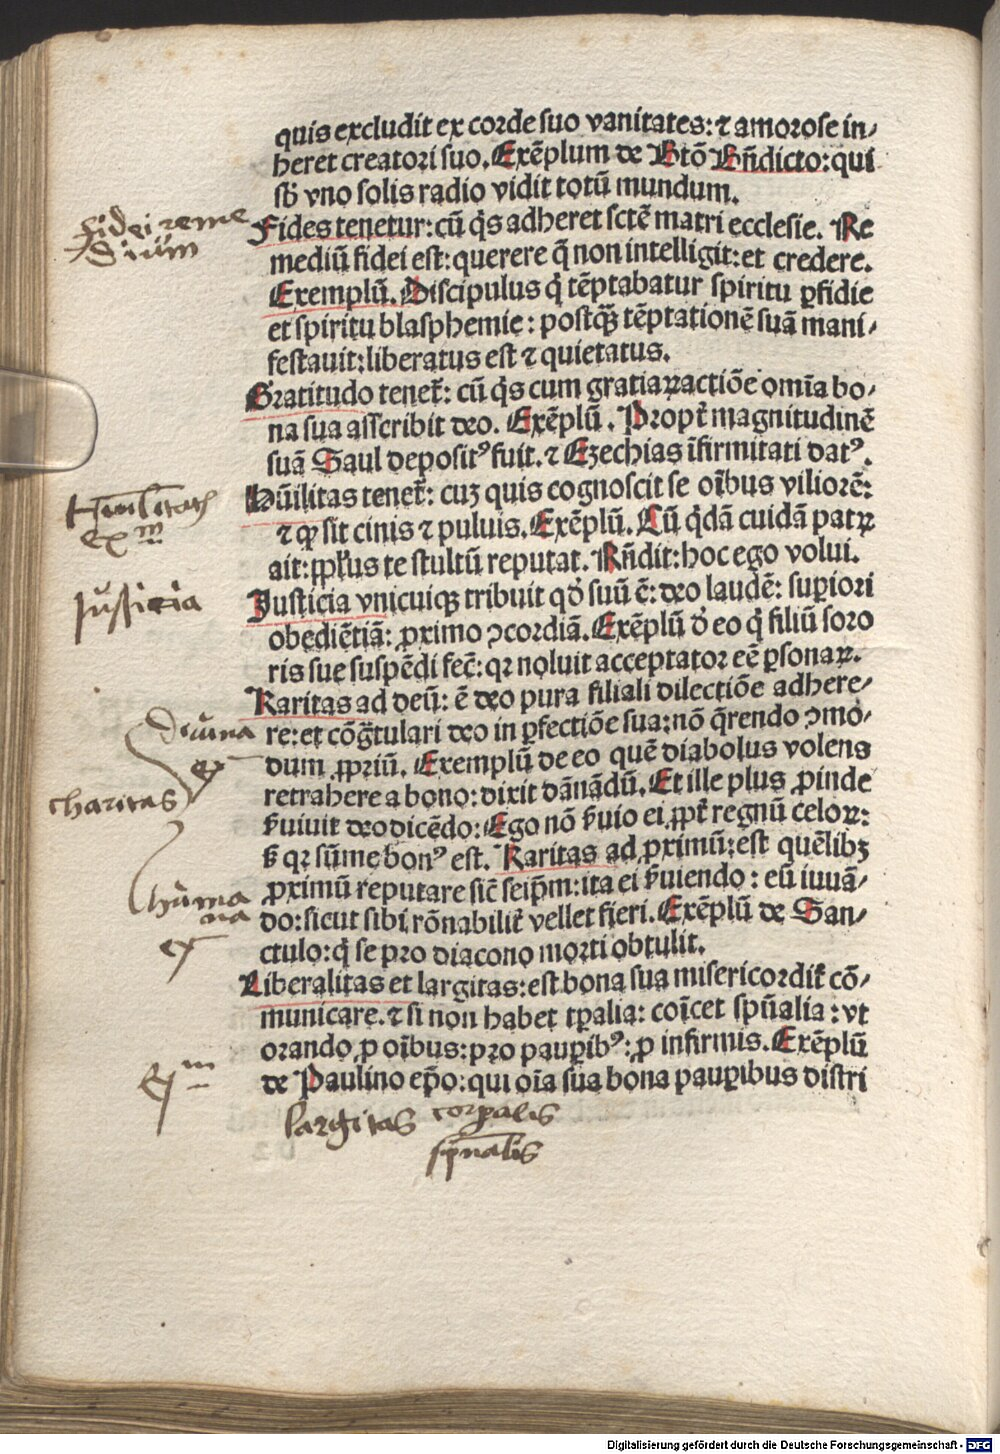 quis excludit ex corde suo vanitates: ⁊ amorose in⸗
heret creatori suo. Exẽplum de Btõ Bñdicto: qui
sb̄ vno solis radio vidit totũ mundum.
Fides tenetur: cũ q̇s adheret sctẽ matri ecclesie. Re
mediũ fidei est: querere q̃ non intelligit: et credere.
Exemplũ. Discipulus q̇ tẽptabatur spiritu ꝑfidie
et spiritu blasphemie: postq̃ꝫ tẽptationẽ suã mani⸗
festauit: liberatus est ⁊ quietatus.
Gratitudo tenet᷑: cũ q̇s cum gratiaꝝ actiõe om̃ia bo⸗
na sua asscribit deo. Exẽplũ. Propt᷑ magnitudinẽ
suã Saul deposit⁹ fuit. ⁊ Ezechias ĩfirmitati dat⁹.
Hũilitas tenet᷑: cuꝫ quis cognoscit se oĩbus viliorẽ:
⁊ ꝙ sit cinis ⁊ puluis. Exẽplũ. Cũ q̇dã cuidã patrꝝ
ait: ꝓpľus te stultũ reputat. Rñdit: hoc ego volui.
Justicia vnicuiqꝫ tribuit qď suũ ẽ: deo laudẽ: suꝑiori
obediẽtiã: ꝓximo ꝯcordiã. Exẽplũ ď eo q̇ filiũ soro
ris sue suspẽdi fec̃: qꝛ noluit acceptator eẽ ꝑsonaꝝ.
Karitas ad deũ: ẽ deo pura filiali dilectiõe adhere⸗
re: et cõg̃tulari deo in ꝑfectiõe sua: nõ q̃rendo ꝯmo⸗
dum ꝓpriũ. Exemplũ de eo quẽ diabolus volens
retrahere a bono: dixit dãnãdũ. Et ille plus ꝓinde
ẜuiuit deo dicẽdo: Ego nõ ẜuio ei ꝓpt᷑ regnũ celoꝝ:
ẜ qꝛ sũme bon⁹ est. Karitas ad ꝓximũ: est quẽlibꝫ
ꝓximũ reputare sic̃ seip̃m: ita ei ẜuiendo: eũ iuuã⸗
do: sicut sibi rõnabilit᷑ vellet fieri. Exẽplũ de San⸗
ctulo: q̇ se pro diacono morti obtulit.
Liberalitas et largitas: est bona sua misericordit᷑ cõ⸗
municare. ⁊ si non habet tꝑalia: coĩcet spũalia: vt
orando ꝓ oĩbus: pro pauꝑib⁹: ꝓ infirmis. Exẽplũ
de Paulino ep̃o: qui oĩa sua bona pauꝑibus distri
fidei reme
dium
Humilitatis
exm
Justicia
diuina
ex
charitas
huma
na
ex
exm
largitas corꝑalis
spũalis
Digitalisierung gefördert durch die Deutsche Forschungsgemeinschaft - DFG